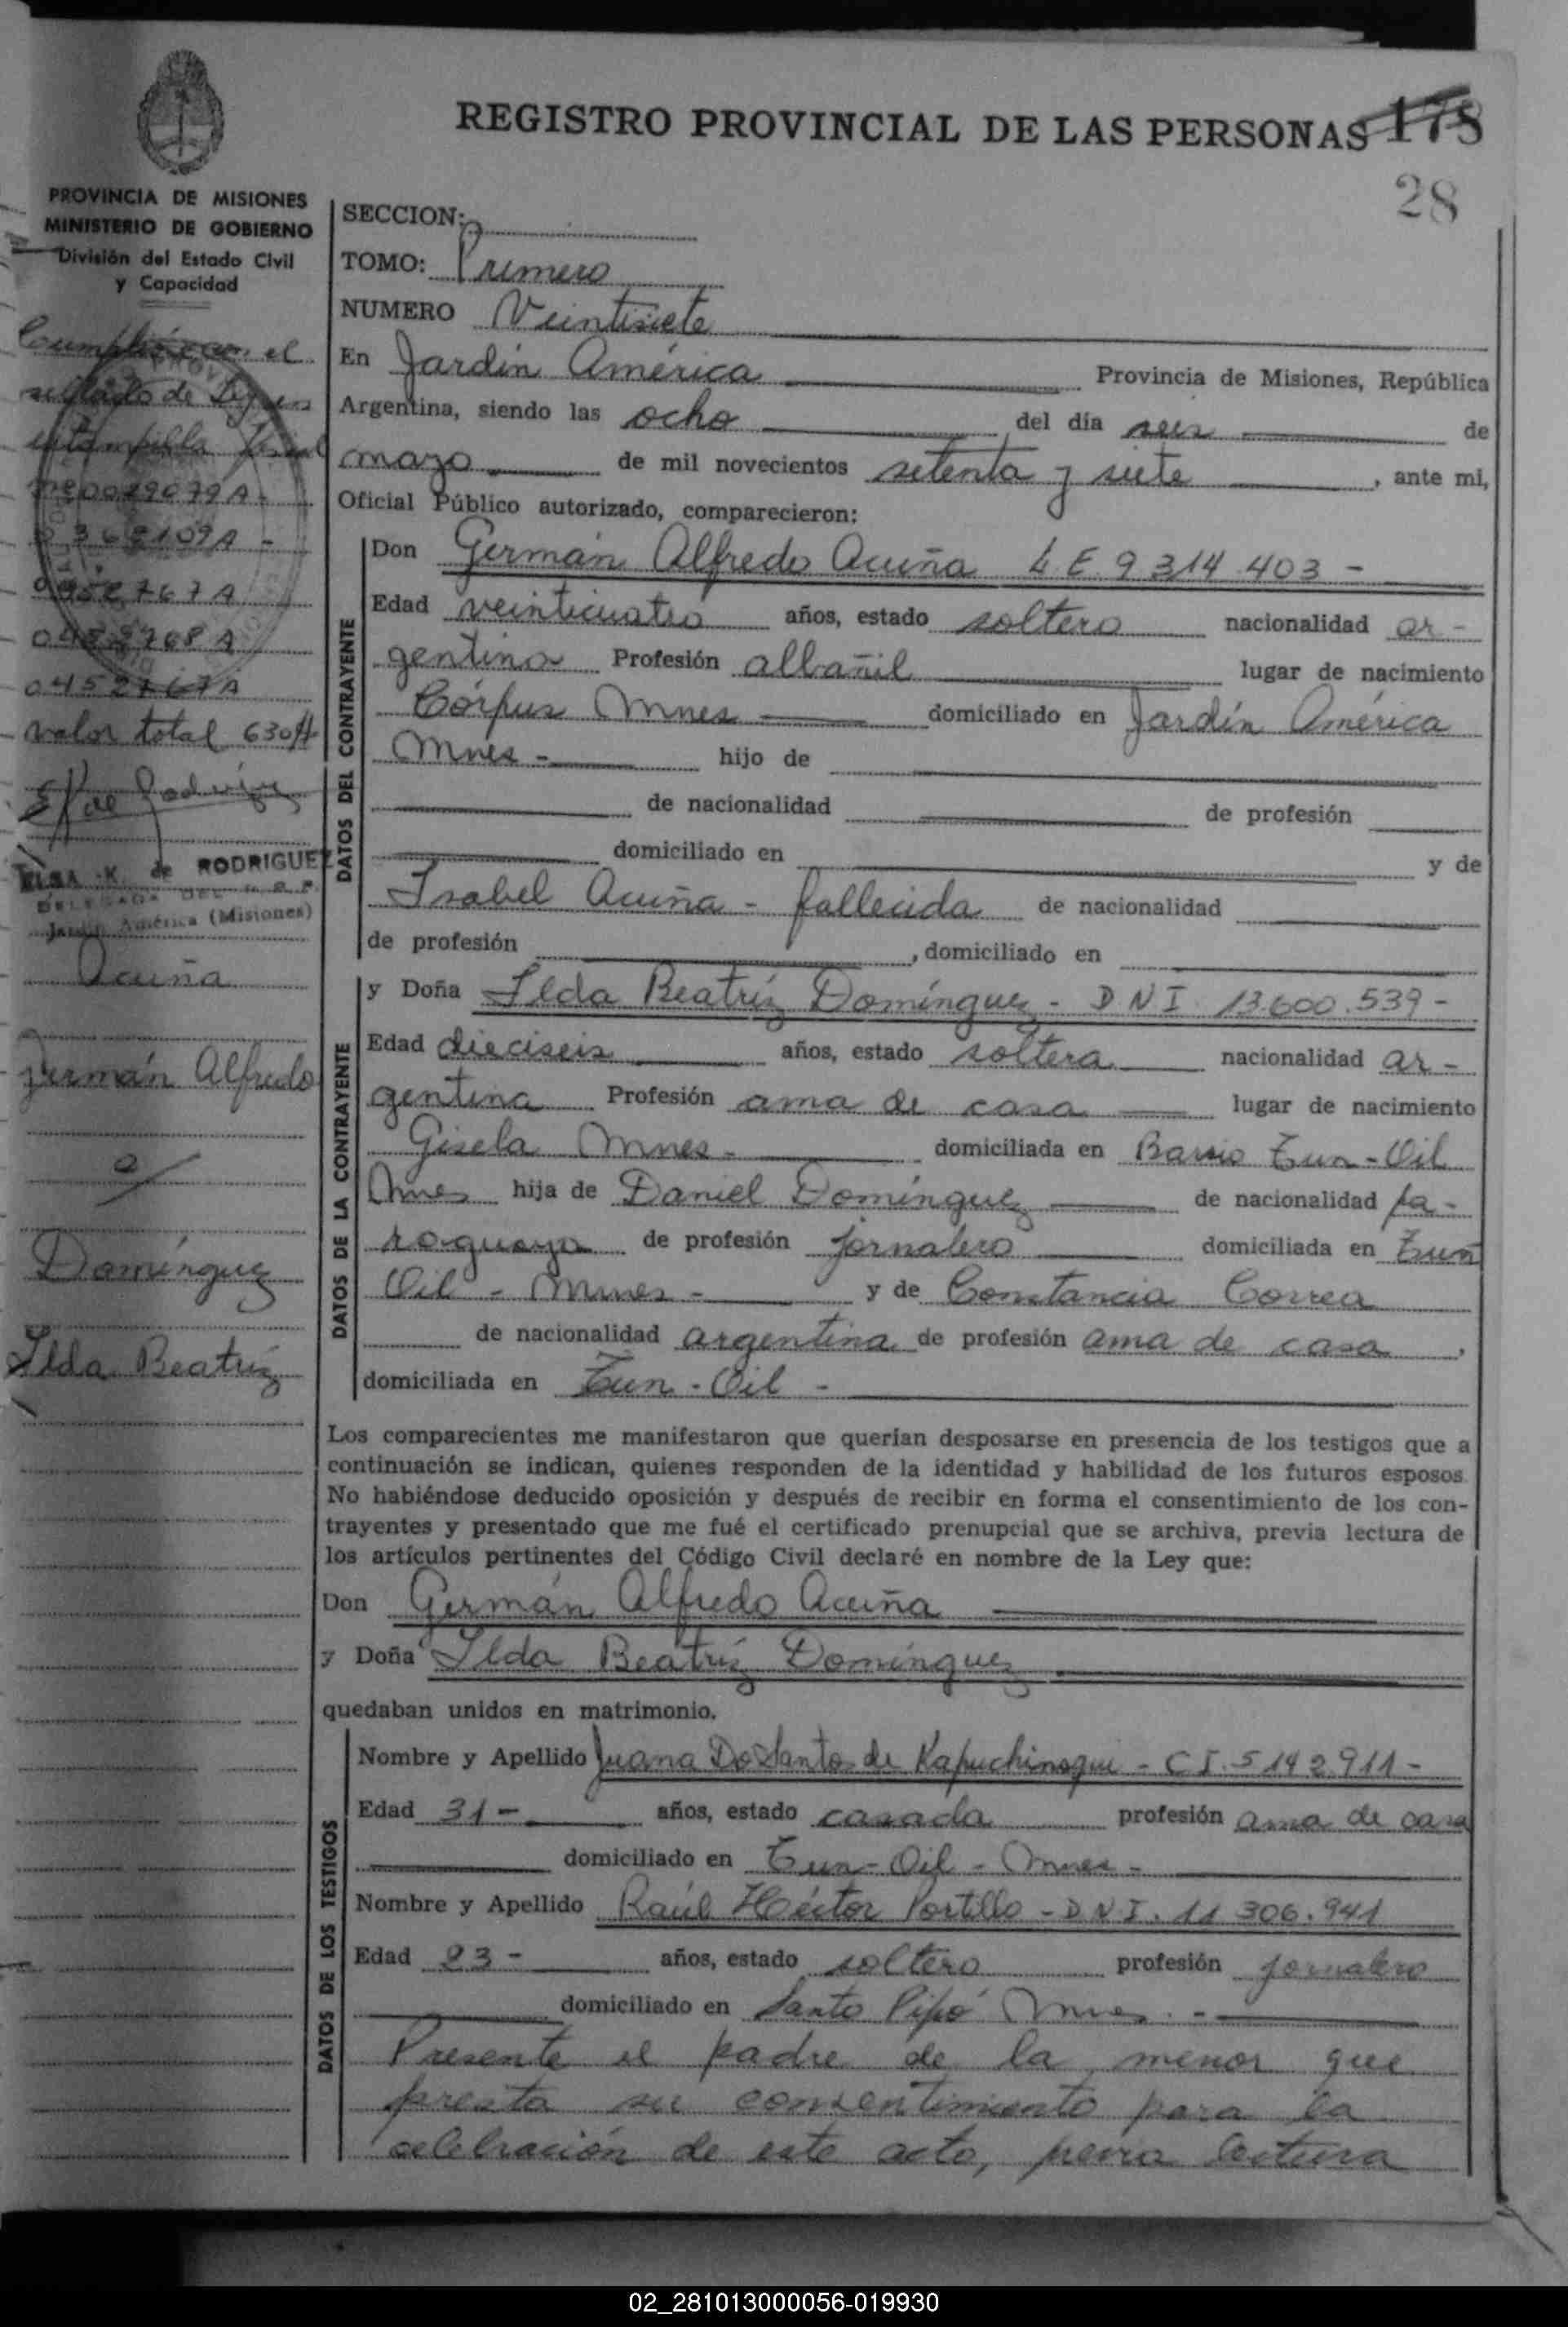 REGISTRO PROVINCIAL DE LAS PERSONAS 178
28
PROVINCIA DE MISIONES
MINISTERIO DE GOBIERNO
División del Estado Civil
y Capacidad
Cumplióse con el
sellado de Ley en
estampilla fiscal
0452767A
valor total 630
ELSA K. de RODRIGUEZ
DELEGADA DEL
Jardín América (Misiones)
Acuña
Germán Alfredo
Domínguez
Ilda Beatríz
SECCION:
TOMO: Primero
NUMERO Veintisiete
En Jardín América Provincia de Misiones, República
Argentina, siendo las ocho del día seis de
mayo de mil novecientos setenta y siete, ante mi,
Oficial Público autorizado, comparecieron:
DATOS DEL CONTRAYENTE
Don Germán Alfredo Acuña L E 9 314 403 -
Edad veinticuatro años, estado soltero nacionalidad ar-
gentino Profesión albañil lugar de nacimiento
Córpus Mnes domiciliado en Jardín América
Mnes - hijo de
de nacionalidad de profesión
domiciliado en y de
Isabel Acuña - fallecida de nacionalidad
de profesión , domiciliado en
DATOS DE LA CONTRAYENTE
y Doña Ilda Beatríz Domínguez - D N I 13.600.539 -
Edad dieciseis años, estado soltera nacionalidad ar-
gentina Profesión ama de casa lugar de nacimiento
Gisela Mnes - domiciliada en Barrio Tun-Oil
Mnes hija de Daniel Domínguez de nacionalidad pa-
raguaya de profesión jornalero domiciliada en Tun
Oil - Mnes - y de Constancia Correa
de nacionalidad argentina de profesión ama de casa,
domiciliada en Tun - Oil -
Los comparecientes me manifestaron que querían desposarse en presencia de los testigos que a
continuación se indican, quienes responden de la identidad y habilidad de los futuros esposos.
No habiéndose deducido oposición y después de recibir en forma el consentimiento de los con-
trayentes y presentado que me fué el certificado prenupcial que se archiva, previa lectura de
los artículos pertinentes del Código Civil declaré en nombre de la Ley que:
Don Germán Alfredo Acuña
y Doña Ilda Beatríz Domínguez
quedaban unidos en matrimonio.
DATOS DE LOS TESTIGOS
Nombre y Apellido Juana Do Santos de Kapuchinsqui - C I. 5 142 911 -
Edad 31 - años, estado casada profesión ama de casa
domiciliado en Tun - Oil - Mnes -
Nombre y Apellido Raúl Héctor Portillo - D.N.I. 11 306.941
Edad 23 - años, estado soltero profesión jornalero
domiciliado en Santo Pipó Mnes. -
Presente el padre de la menor que
presta su consentimiento para la
celebración de este acto, previa lectura
02_281013000056-019930